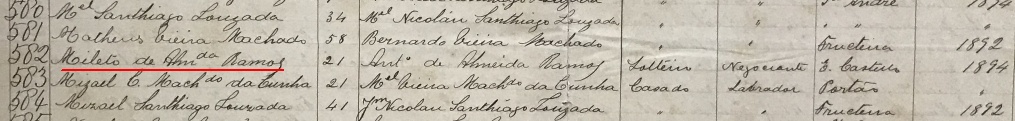 580 M.el Santhiago Louzada 34 M.el Nicolau Santhiago Louzada " " S. André 1894
581 Matheus Vieira Machado 58 Bernardo Vieira Machado " " Fructeira 1892
582 Mileto de Alm.da Ramos 21 Ant.o de Almeida Ramos Solteiro Negociante E. Castello 1894
583 Mizael C. Mach.do da Cunha 21 M.el Vieira Mach.do da Cunha Casado Labrador Portão "
584 Mizael Santhiago Louzada 41 J.m Nicolau Santhiago Louzada " " Fructeira 1892
585